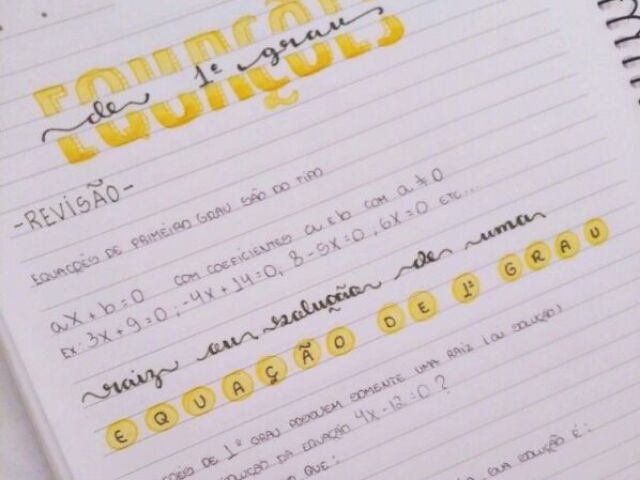 EQUAÇÕES
de 1º grau
-REVISÃO-
EQUAÇÕES DE PRIMEIRO GRAU SÃO DO TIPO
ax + b = 0 COM COEFICIENTES a e b COM a ≠ 0
Ex: 3x + 9 = 0; -4x + 14 = 0; 8 - 5x = 0; 6x = 0 ETC...
raiz ou solução de uma
EQUAÇÃO DE 1º GRAU
DE 1º GRAU POSSUEM SOMENTE UMA RAIZ (OU SOLUÇÃO)
DA EQUAÇÃO 4x - 12 = 0 ?
QUE:
SUA SOLUÇÃO É: